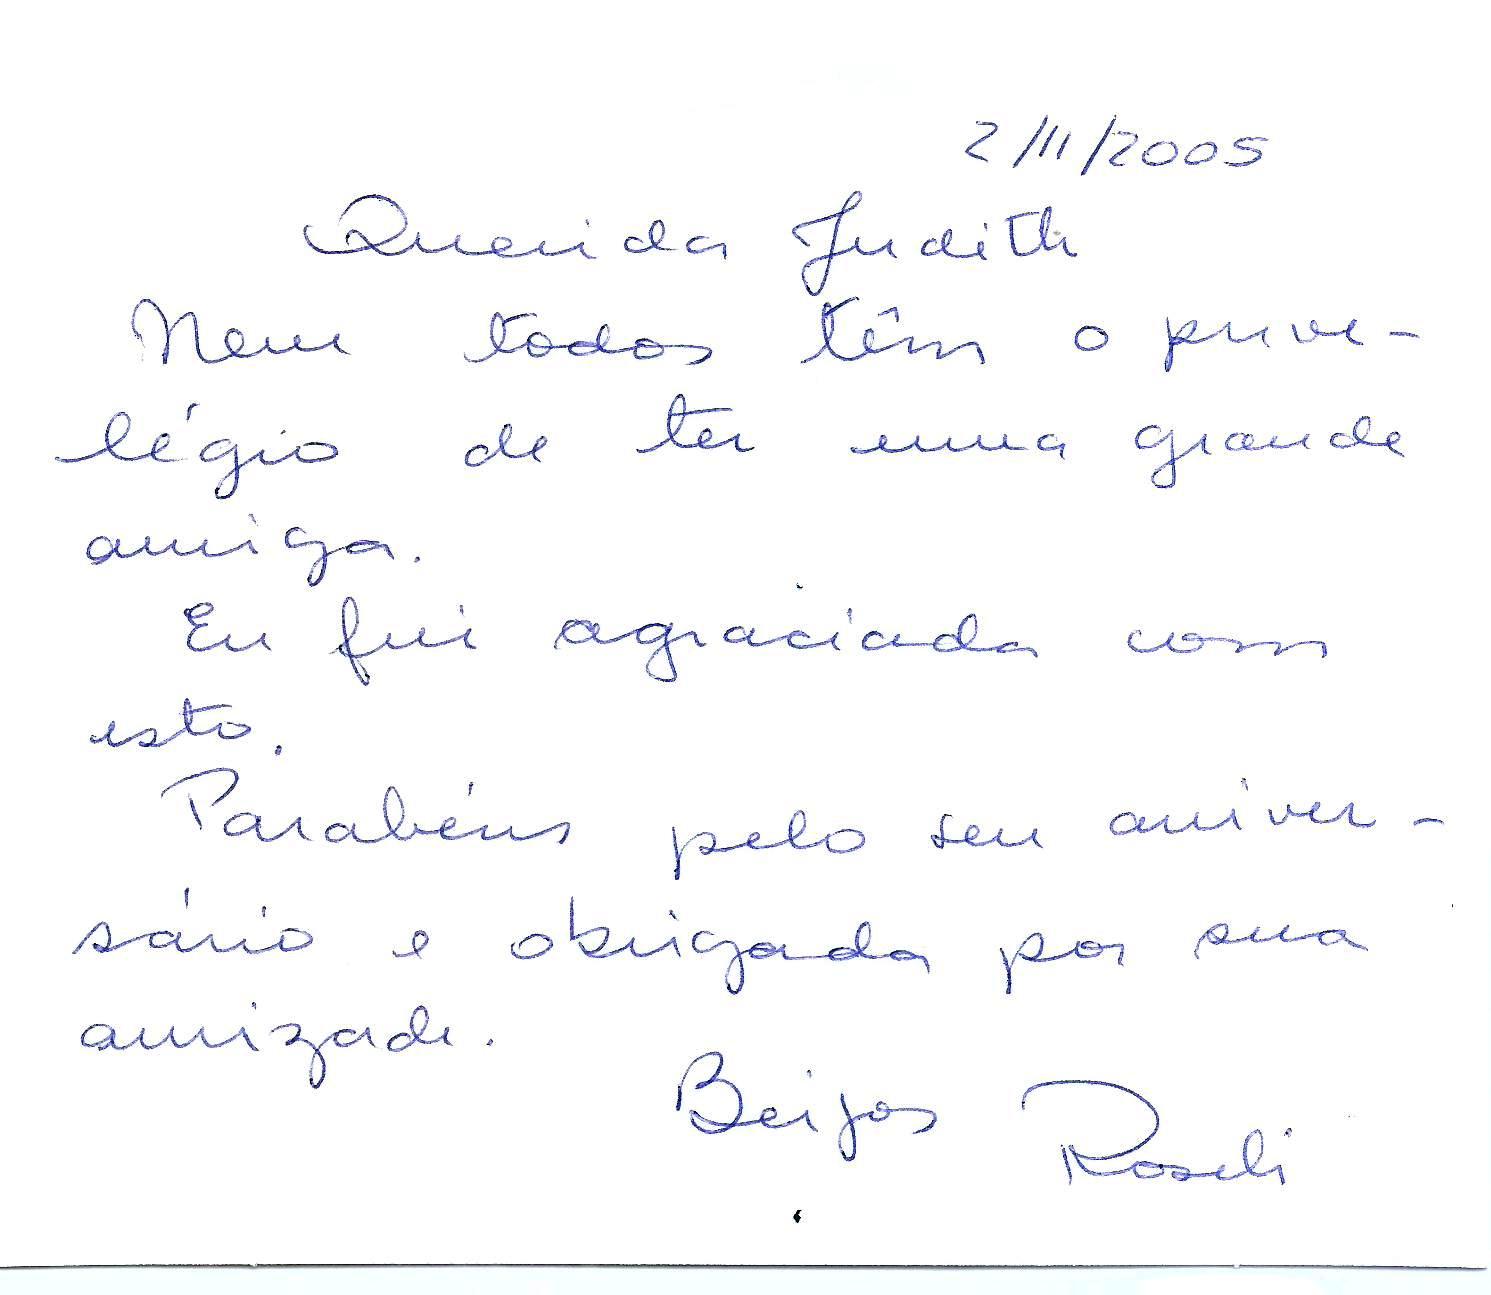 2/11/2005
Querida Judith
Nem todos têm o prive-
légio de ter uma grande
amiga.
Eu fui agraciada com
isto.
Parabéns pelo seu aniver-
sário e obrigada por sua
amizade.
Beijos Roseli